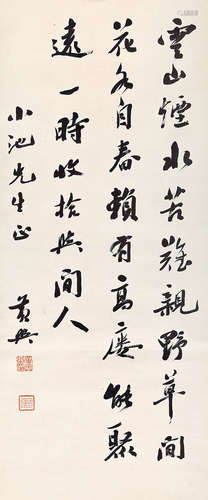 雲山煙水苦難親野草閒
花各自春賴有高懷能聚
遠一時收拾與閒人
小池先生正
黃興